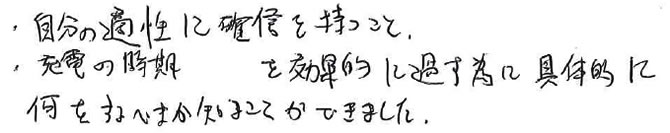 ・自分の適性に確信を持つこと.
・充電の時期 を効果的に過す為に具体的に
何をすべきか知ることができました.